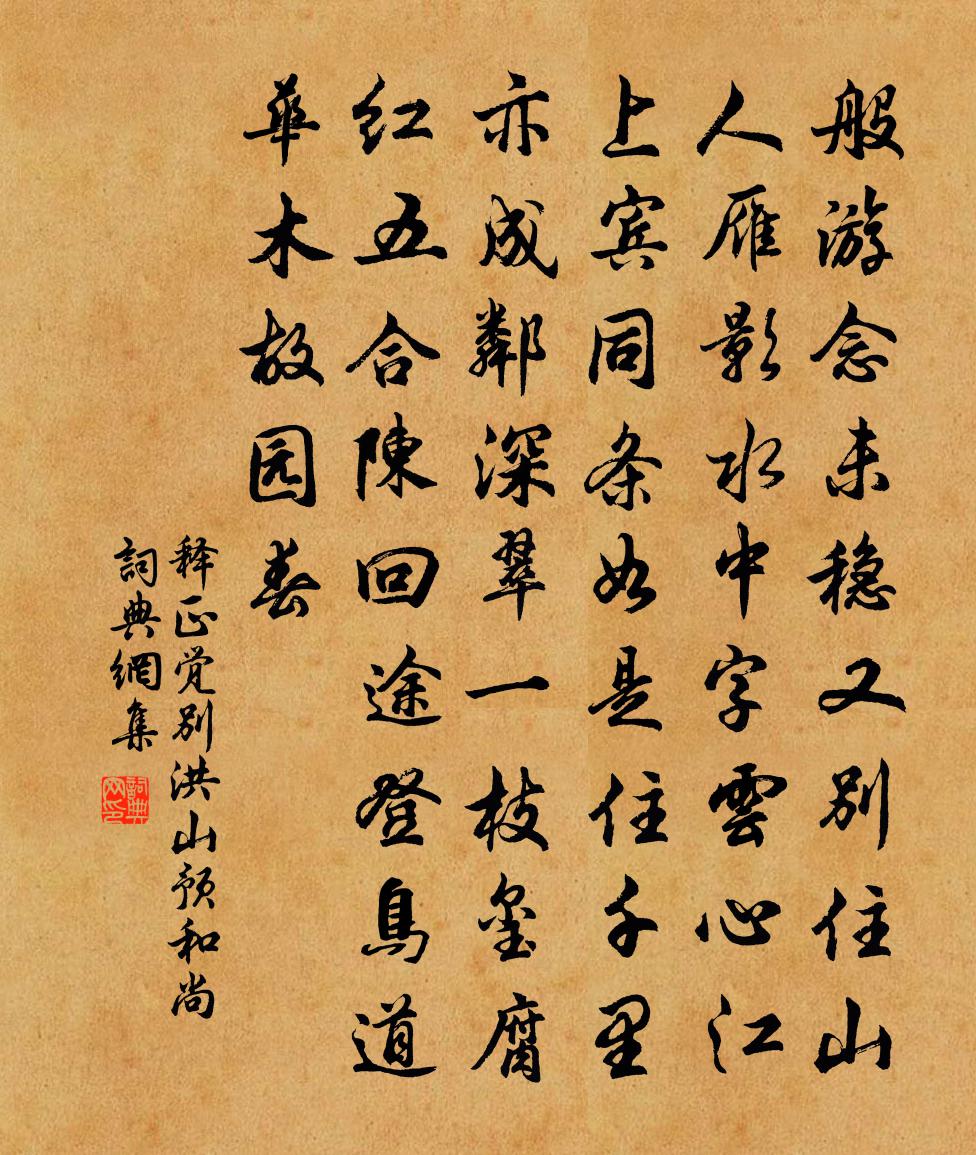 般游念未稳又别住山
人雁影水中字雲心江
上宾同条如是住千里
亦成鄰深翠一枝玺腐
红五合陳回途登鳥道
華木故园春
释正觉别洪山预和尚
詞典網集
詞典网印